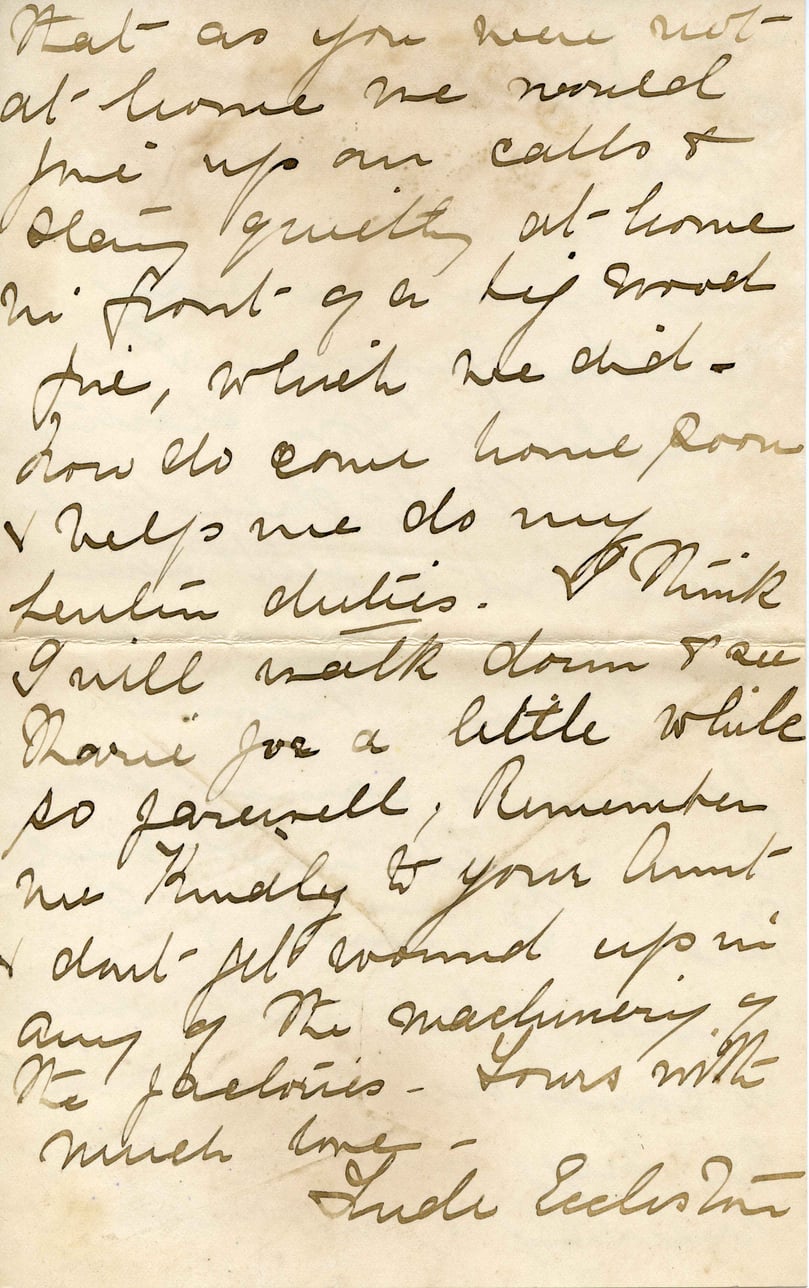 that as you were not
at home we would
give up our calls &
stay quietly at home
in front of a big wood
fire, which we did -
now do come home soon
& help me do my
Lenten duties. I think
I will walk down & see
Marie for a little while
so farewell, Remember
me Kindly to your Aunt
& dont get wound up in
any of the machinery of
the factories - Yours with
much love -
Eccleston